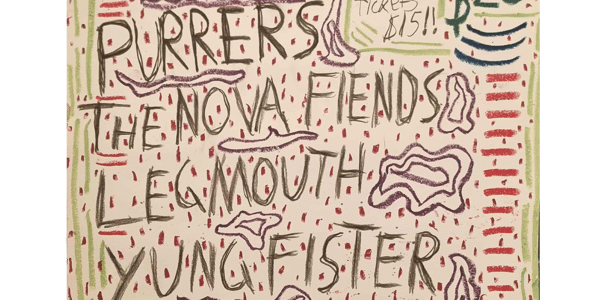 TICKETS
$15!!
PURRERS
THE NOVA FIENDS
LEGMOUTH
YUNG FISTER